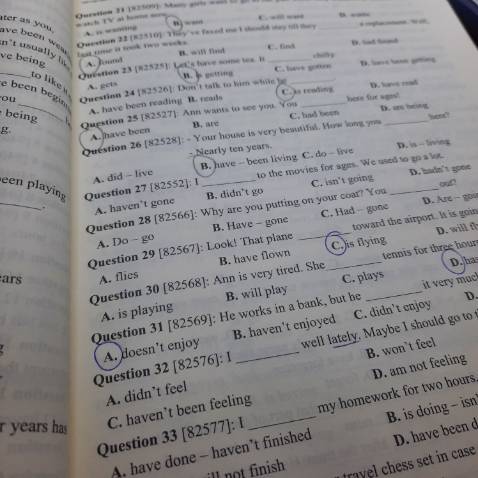 Question 21 [82509]: Many girls want to
watch TV at home
A. is wanting
B. want
C. will want
D. wants
Question 22 [82510]: They've faxed me I should stay till they
last time it took two weeks.
A. found
B. will find
C. find
D. had found
Question 23 [82525]: Let's have some tea. It chilly.
A. gets
B. is getting
C. have gotten
Question 24 [82526]: Don't talk to him while he
A. have been reading
B. reads
C. is reading
D. have read
Question 25 [82527]: Ann wants to see you. You here for ages!
A. have been
B. are
C. had been
D. are being
Question 26 [82528]: - Your house is very beautiful. How long you here?
- Nearly ten years.
A. did – live
B. have – been living
C. do – live
D. is – living
Question 27 [82552]: I to the movies for ages. We used to go a lot.
A. haven't gone
B. didn't go
C. isn't going
D. hadn't gone
Question 28 [82566]: Why are you putting on your coat? You out?
A. Do – go
B. Have – gone
C. Had – gone
D. Are –
Question 29 [82567]: Look! That plane toward the airport. It is
A. flies
B. have flown
C. is flying
D. will
Question 30 [82568]: Ann is very tired. She tennis for three hours
A. is playing
B. will play
C. plays
D. has
Question 31 [82569]: He works in a bank, but he it very much
A. doesn't enjoy
B. haven't enjoyed
C. didn't enjoy
D.
Question 32 [82576]: I well lately. Maybe I should go to
A. didn't feel
B. won't feel
C. haven't been feeling
D. am not feeling
Question 33 [82577]: I my homework for two hours,
A. have done – haven't finished
B. is doing – isn'
not finish
D. have been
travel chess set in case
ter as you
ave been
n't usually
ve being
to like
e been
ou
being
g.
een playing
ars
r years has